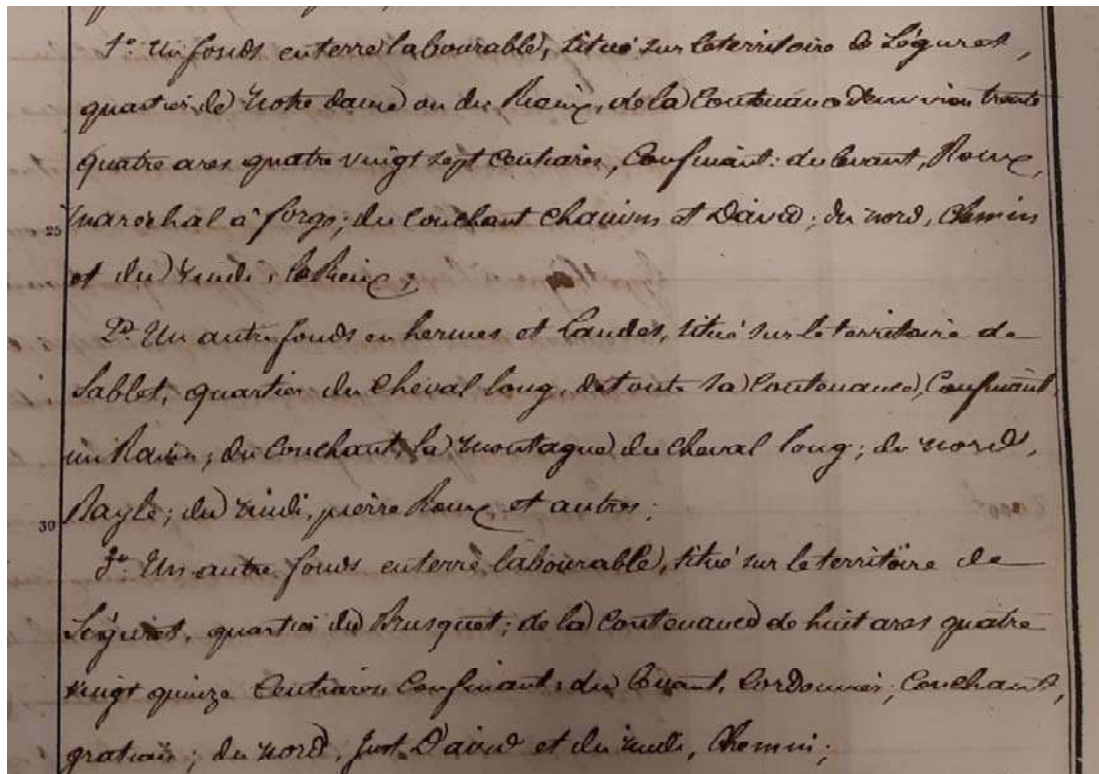 1º. Un fonds en terre labourable, situé sur le territoire de Séguret,
quartier de Notre dame ou du Rieux, de la Contenance d'environ trente
quatre ares quatre vingt sept Centiares, Confinant: du levant, Roux,
25 maréchal à forge; du Couchant Chauvin et David; du nord, Chemin
et du midi, le Rieux;
2º. Un autre fonds en hermes et Landes, situé sur le territoire de
Sablet, quartier du Cheval long, de toute sa Contenance, Confinant,
un Ravin; du Couchant, la montagne du Cheval long; du nord,
30 Rayle; du midi, pierre Roux et autres;
3º. Un autre fonds en terre labourable, situé sur le territoire de
Séguret, quartier du Brusquet; de la Contenance de huit ares quatre
vingt quinze Centiares Confinant: du levant, Cordonnier; Couchant,
gratian; du nord, Just David et du midi, Chemin;